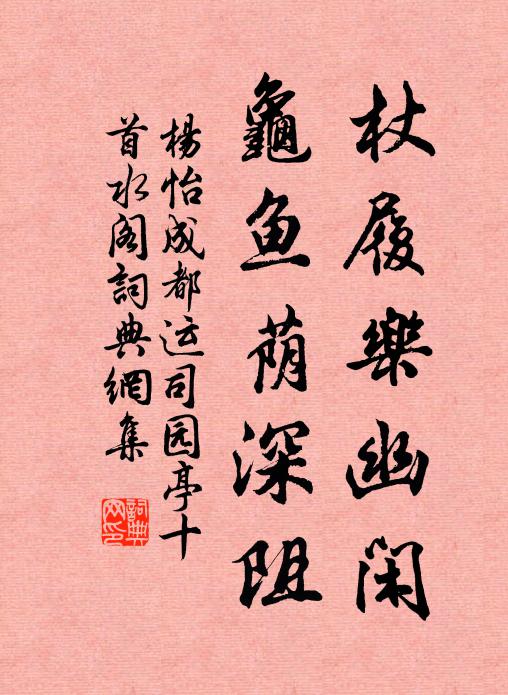 杖履樂幽闲
龜鱼荫深阻
楊怡成都运司园亭十
首水阁詞典網集
詞典
网印